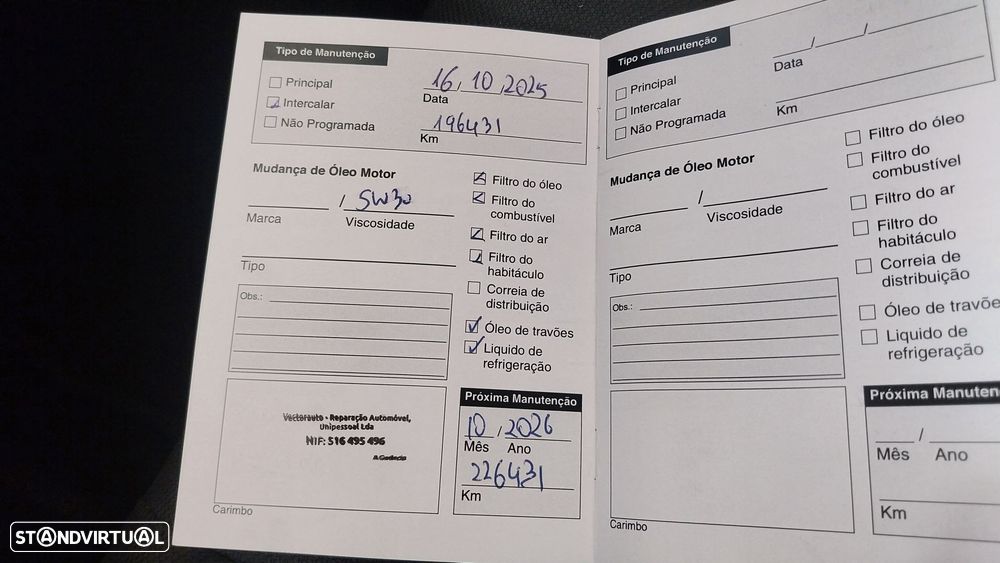 Tipo de Manutenção
Principal
Intercalar
Não Programada
16, 10, 2025
Data
196431
Km
Mudança de Óleo Motor
/ 5W30
Marca
Viscosidade
Tipo
Obs.:
Filtro do óleo
Filtro do
combustível
Filtro do ar
Filtro do
habitáculo
Correia de
distribuição
Óleo de travões
Liquido de
refrigeração
Vectorauto - Reparação Automóvel,
Unipessoal Lda
NIF: 516 495 496
A Gerência
Carimbo
Próxima Manutenção
10 , 2026
Mês Ano
226431
Km
Tipo de Manutenção
Principal
Intercalar
Não Programada
/ /
Data
Km
Mudança de Óleo Motor
/
Marca
Viscosidade
Tipo
Obs.:
Filtro do óleo
Filtro do
combustível
Filtro do ar
Filtro do
habitáculo
Correia de
distribuição
Óleo de travõe
Liquido de
refrigeração
Carimbo
Próxima Manuten
/
Mês Ano
Km
STANDVIRTUAL